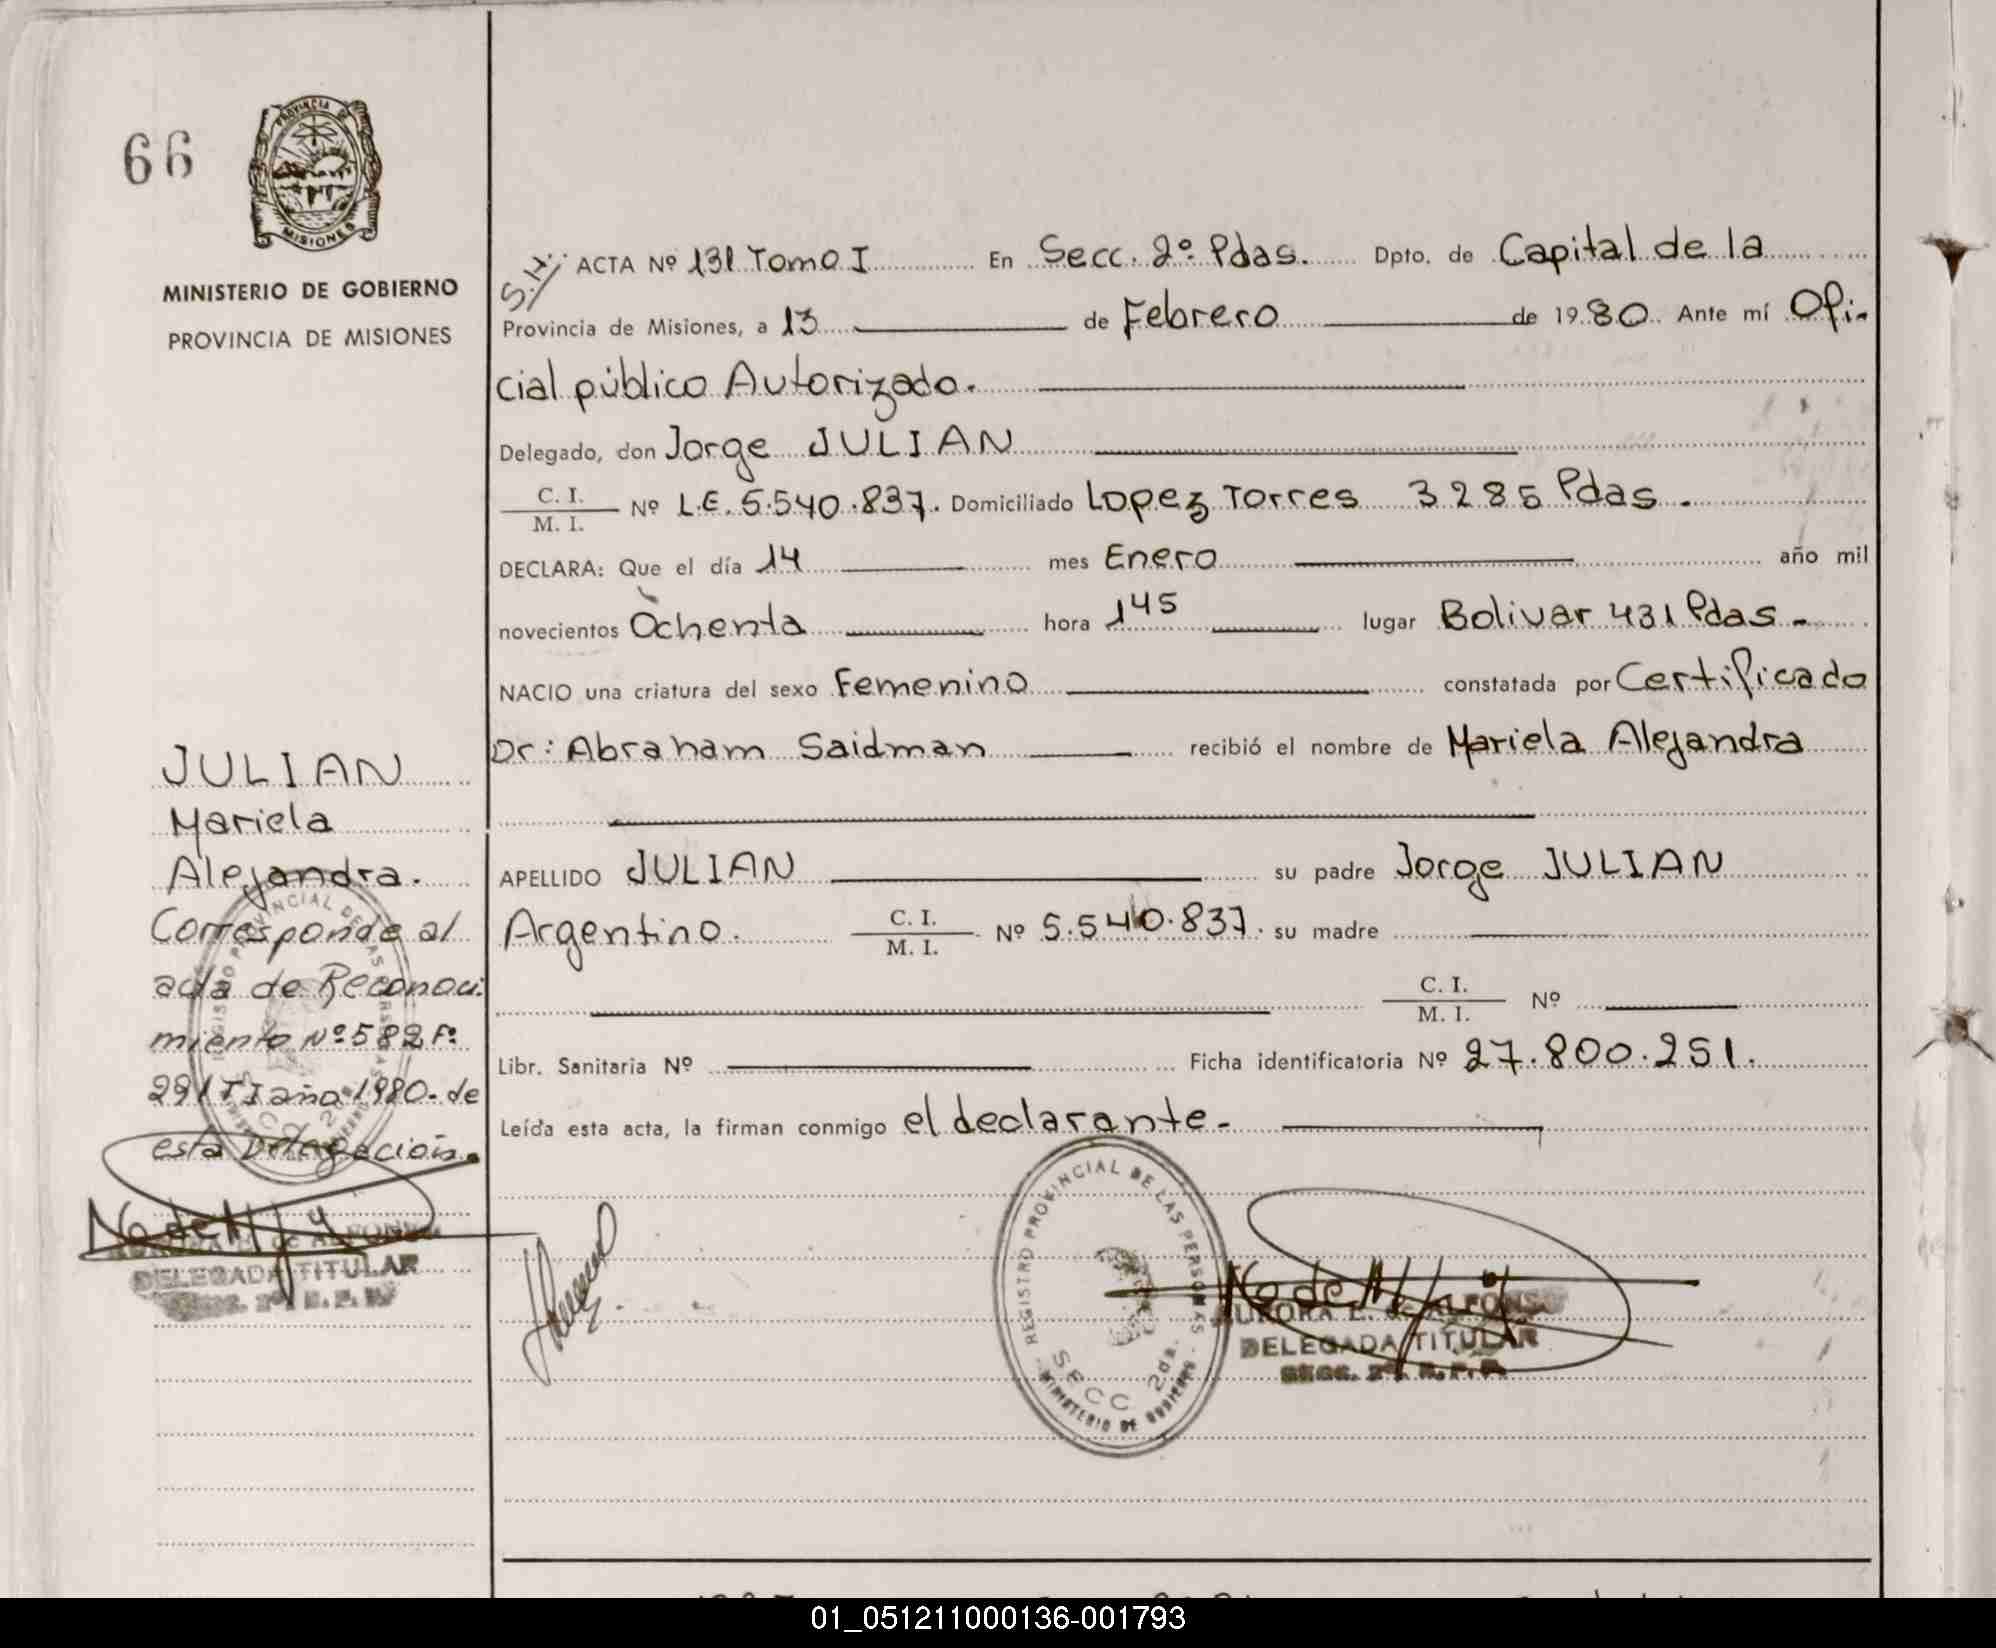 66
PROVINCIA DE
MISIONES
MINISTERIO DE GOBIERNO
PROVINCIA DE MISIONES
JULIAN
Mariela
Alejandra.
Corresponde al
acta de Reconoci-
miento Nº 582 Fº
291 T I año 1980. de
esta Delegación.
ALFONSO
DELEGADA TITULAR
SECC. 2ª R. P. P.
ACTA Nº 131 Tomo I En Secc. 2º Pdas. Dpto. de Capital de la
Provincia de Misiones, a 13 de Febrero de 1980. Ante mí Ofi-
cial público Autorizado.
Delegado, don Jorge JULIAN
C. I.
M. I. Nº L.E. 5.540.837. Domiciliado Lopez Torres 3285 Pdas.
DECLARA: Que el día 14 mes Enero año mil
novecientos Ochenta hora 1 45 lugar Bolivar 431 Pdas.-
NACIO una criatura del sexo Femenino constatada por Certificado
Dr: Abraham Saidman recibió el nombre de Mariela Alejandra
APELLIDO JULIAN su padre Jorge JULIAN
Argentino. C. I.
M. I. Nº 5.540.837. su madre
C. I.
M. I. Nº
Libr. Sanitaria Nº Ficha identificatoria Nº 27.800.251.
Leída esta acta, la firman conmigo el declarante.-
REGISTRO PROVINCIAL DE LAS PERSONAS
SECC 2da.
MINISTERIO DE GOBIERNO
AURORA E. de ALFONSO
DELEGADA TITULAR
SECC. 2ª R. P. P.
01_051211000136-001793